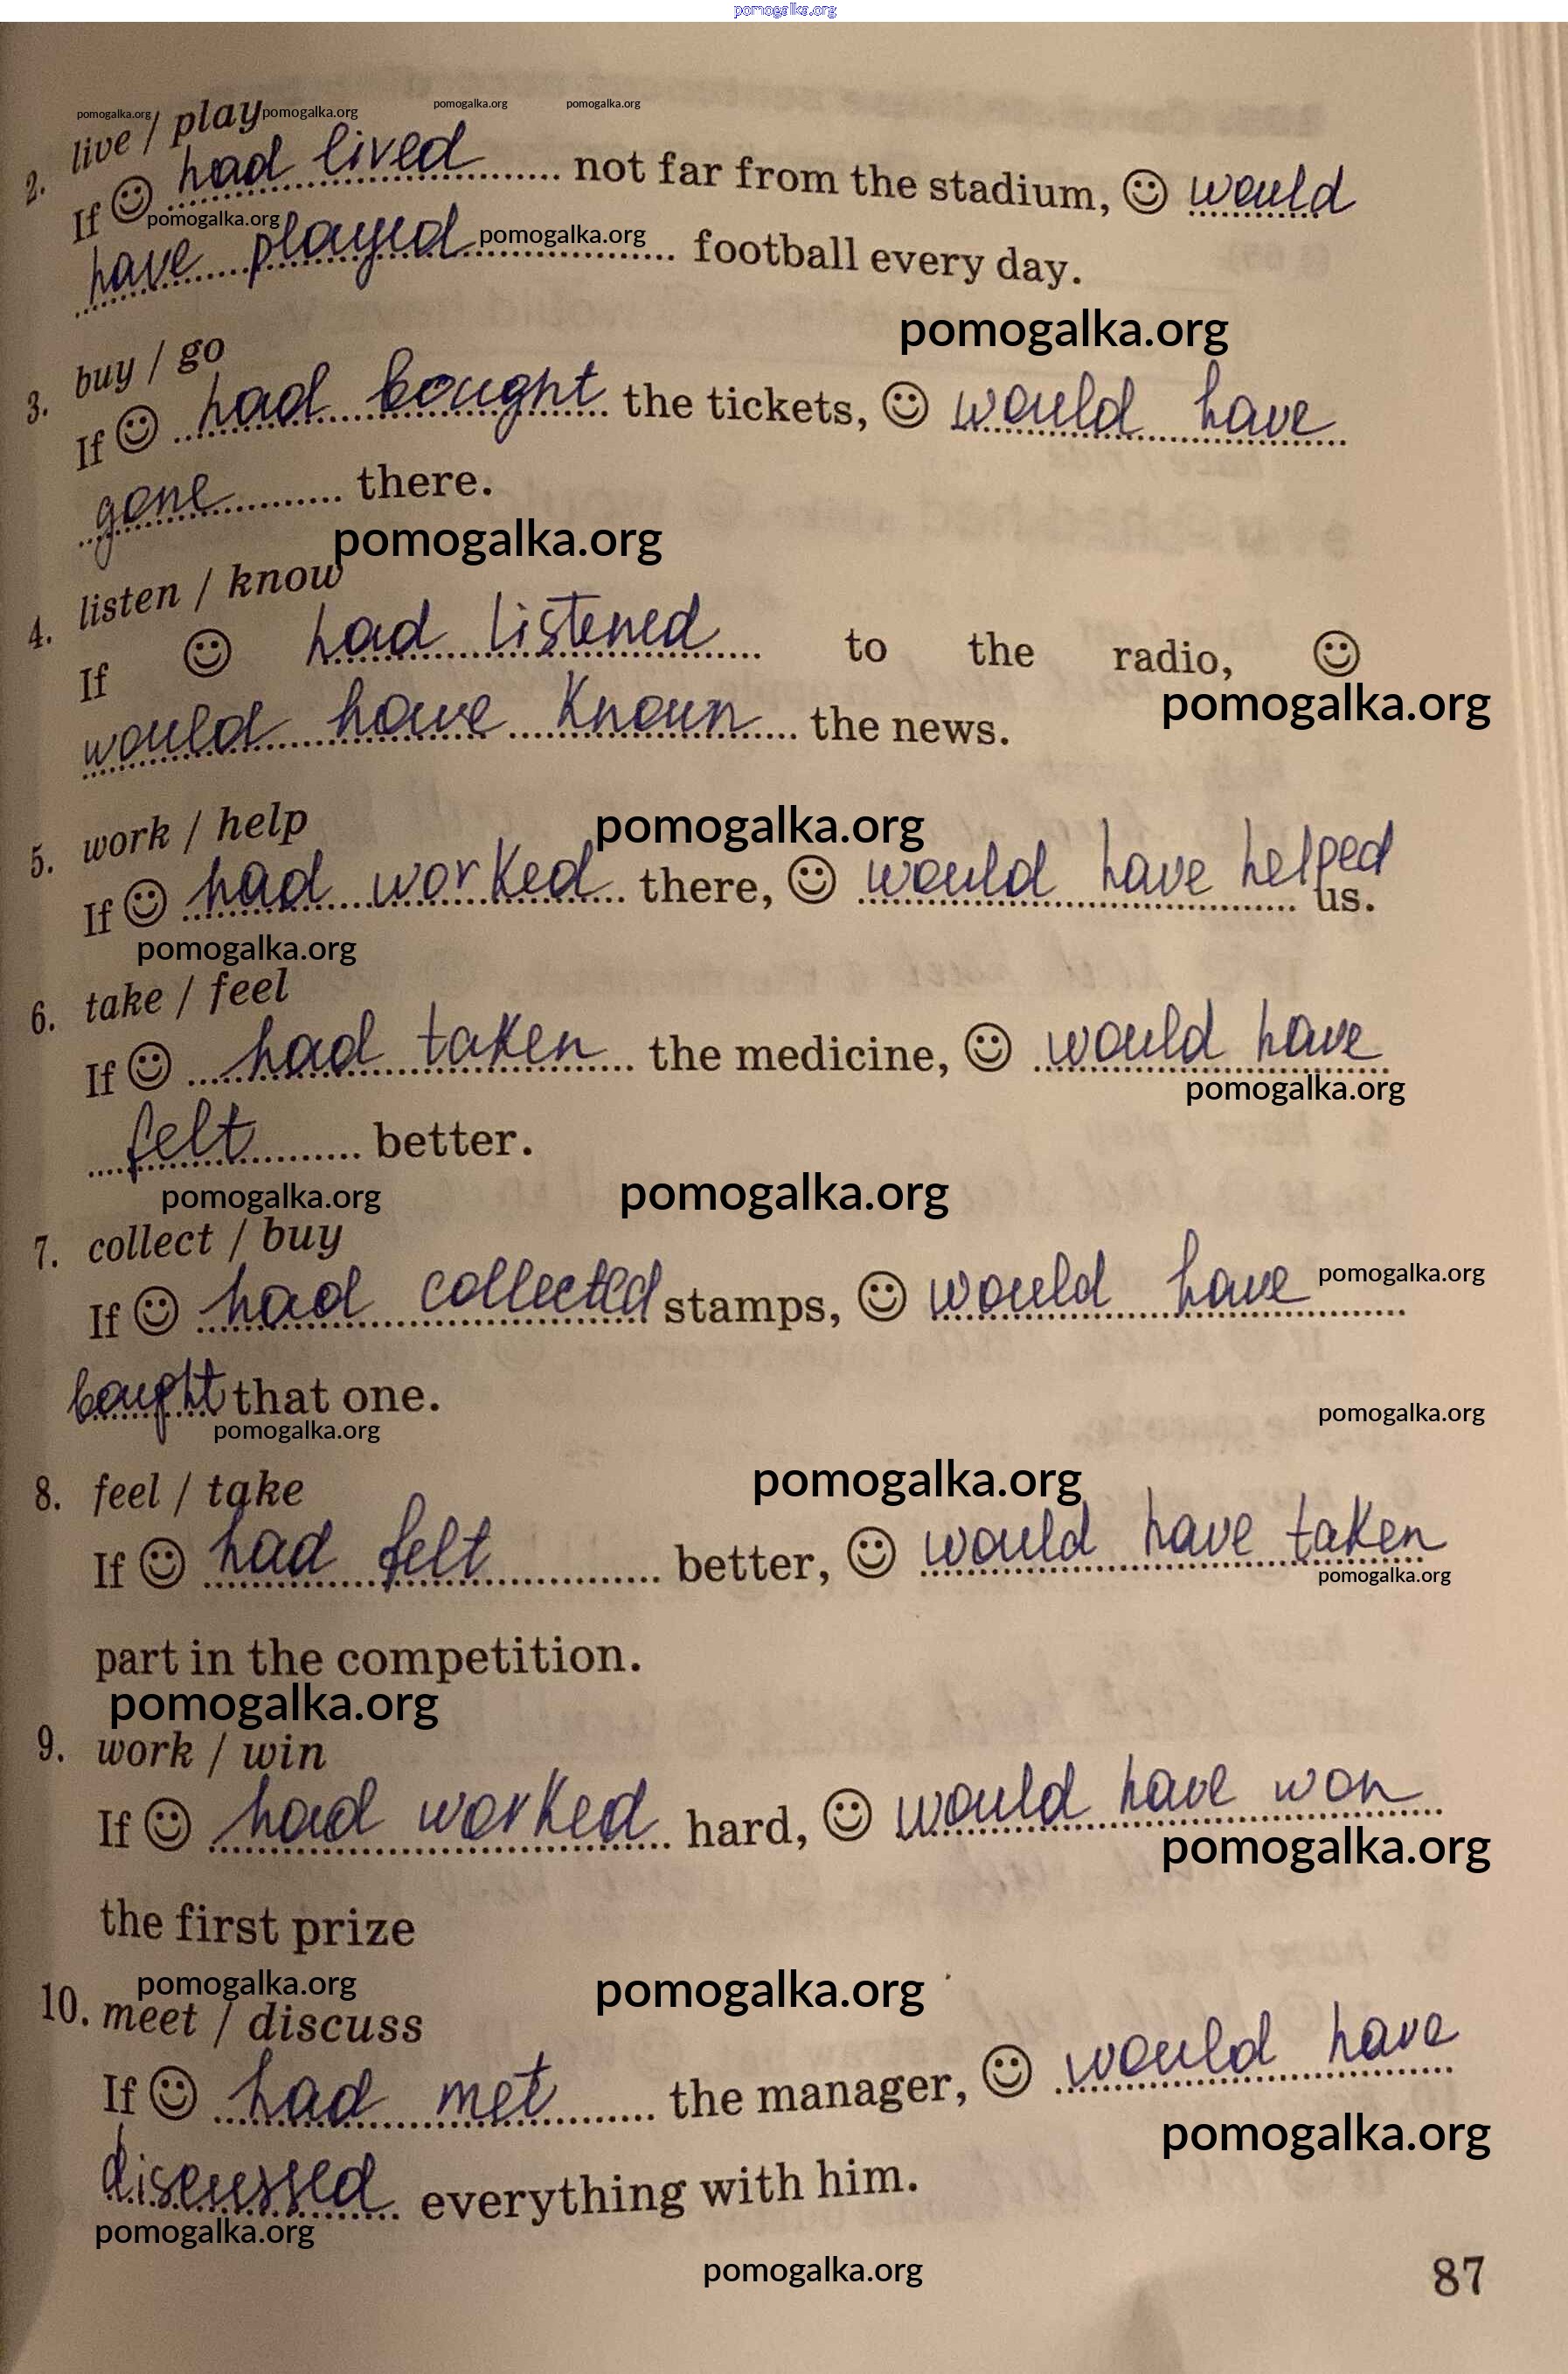 pomogalka.org
pomogalka.org pomogalka.org pomogalka.org pomogalka.org
2. live / play
If ☺ had lived not far from the stadium, ☺ would
pomogalka.org pomogalka.org
have played football every day.
pomogalka.org
3. buy / go
If ☺ had bought the tickets, ☺ would have
gone there.
pomogalka.org
4. listen / know
If ☺ had listened to the radio, ☺
pomogalka.org
would have known the news.
pomogalka.org
5. work / help
If ☺ had worked there, ☺ would have helped us.
pomogalka.org
6. take / feel
If ☺ had taken the medicine, ☺ would have
pomogalka.org
felt better.
pomogalka.org pomogalka.org
7. collect / buy
If ☺ had collected stamps, ☺ would have
pomogalka.org
bought that one.
pomogalka.org
pomogalka.org
8. feel / take
pomogalka.org
If ☺ had felt better, ☺ would have taken
pomogalka.org
part in the competition.
pomogalka.org
9. work / win
If ☺ had worked hard, ☺ would have won
pomogalka.org
the first prize
pomogalka.org pomogalka.org
10. meet / discuss
If ☺ had met the manager, ☺ would have
pomogalka.org
discussed everything with him.
pomogalka.org
pomogalka.org
87